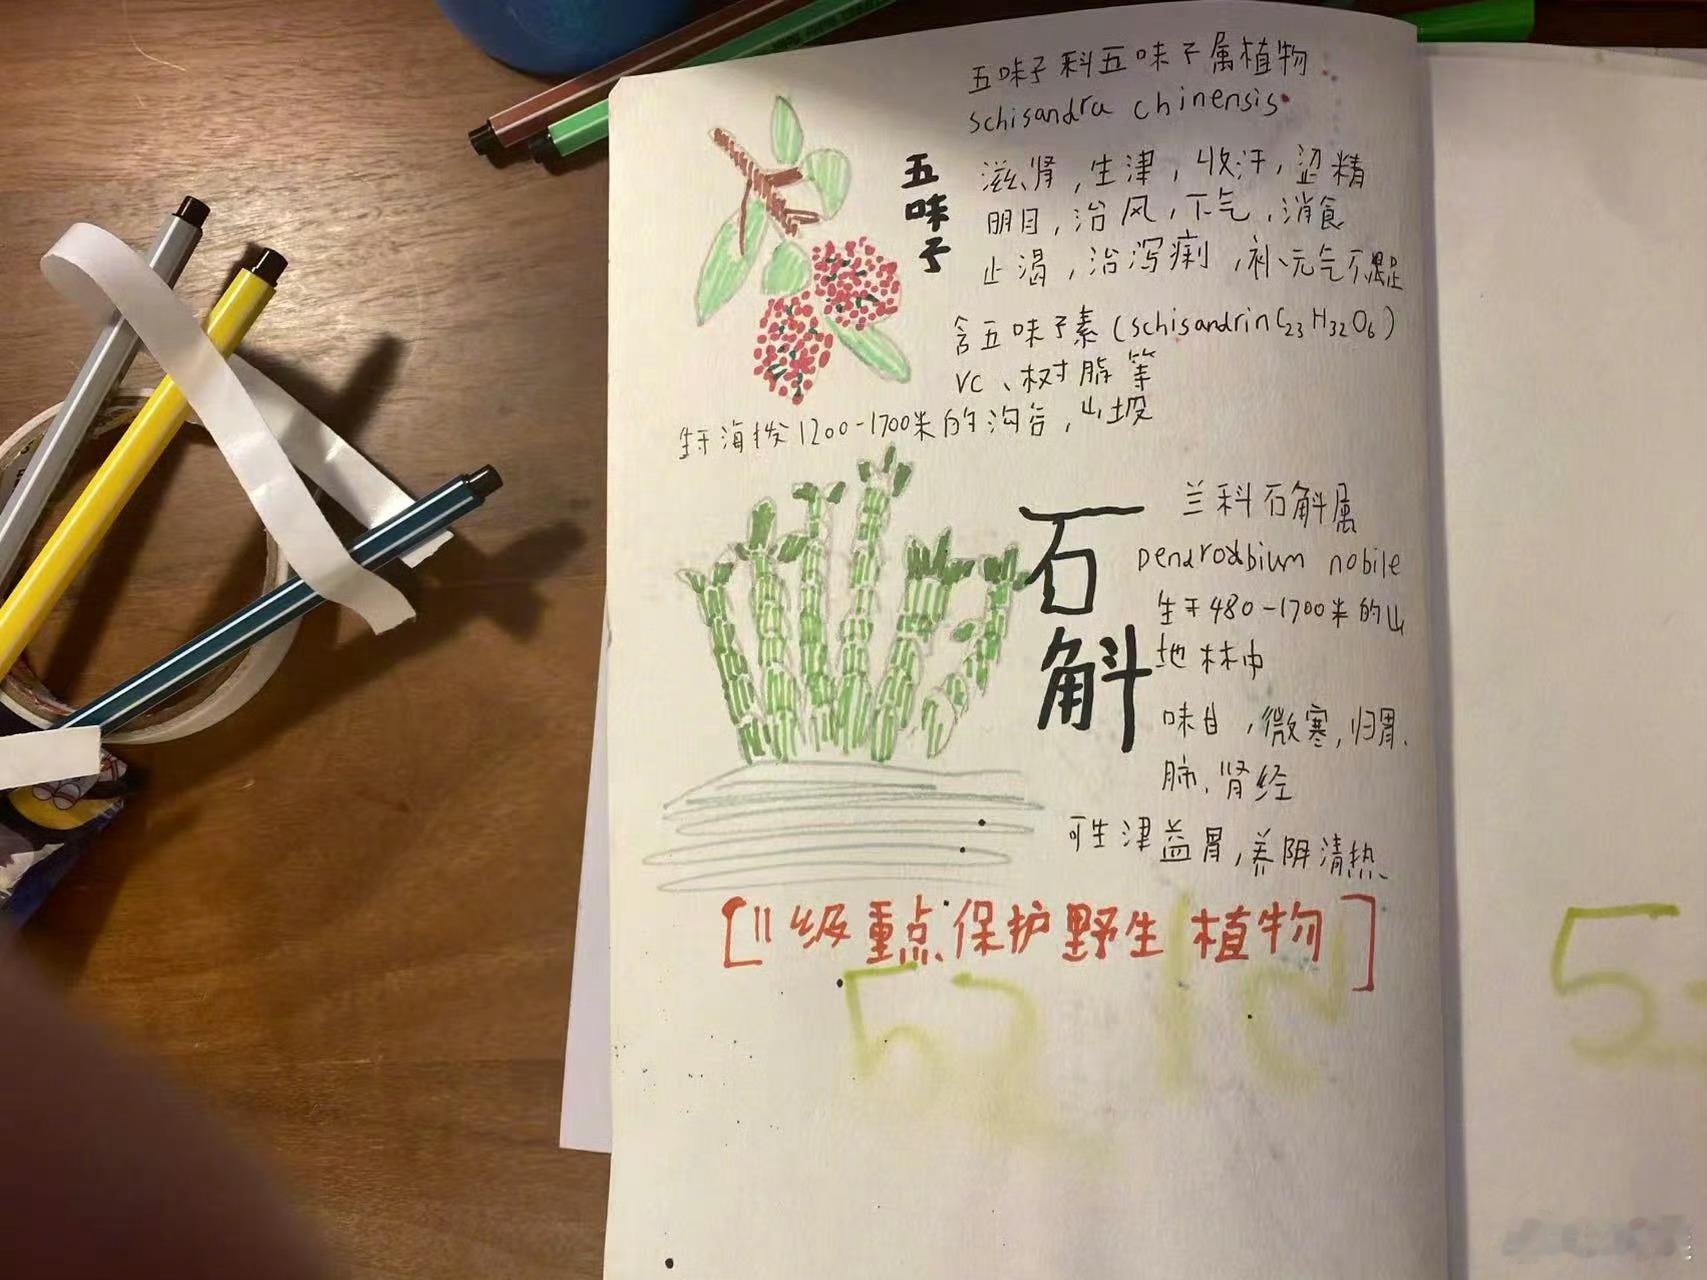 五味子科五味子属植物
schisandra chinensis
五味子
滋肾，生津，收汗，涩精
明目，治风，下气，消食
止渴，治泻痢，补元气不足
含五味子素（schisandrin C23H32O6）
VC、树脂等
生于海拔1200-1700米的沟谷，山坡
石斛
兰科石斛属
Dendrodbium nobile
生于480-1700米的山
地林中
味甘，微寒，归胃、
肺、肾经
可生津益胃，养阴清热、
[II级重点保护野生植物]
52
5